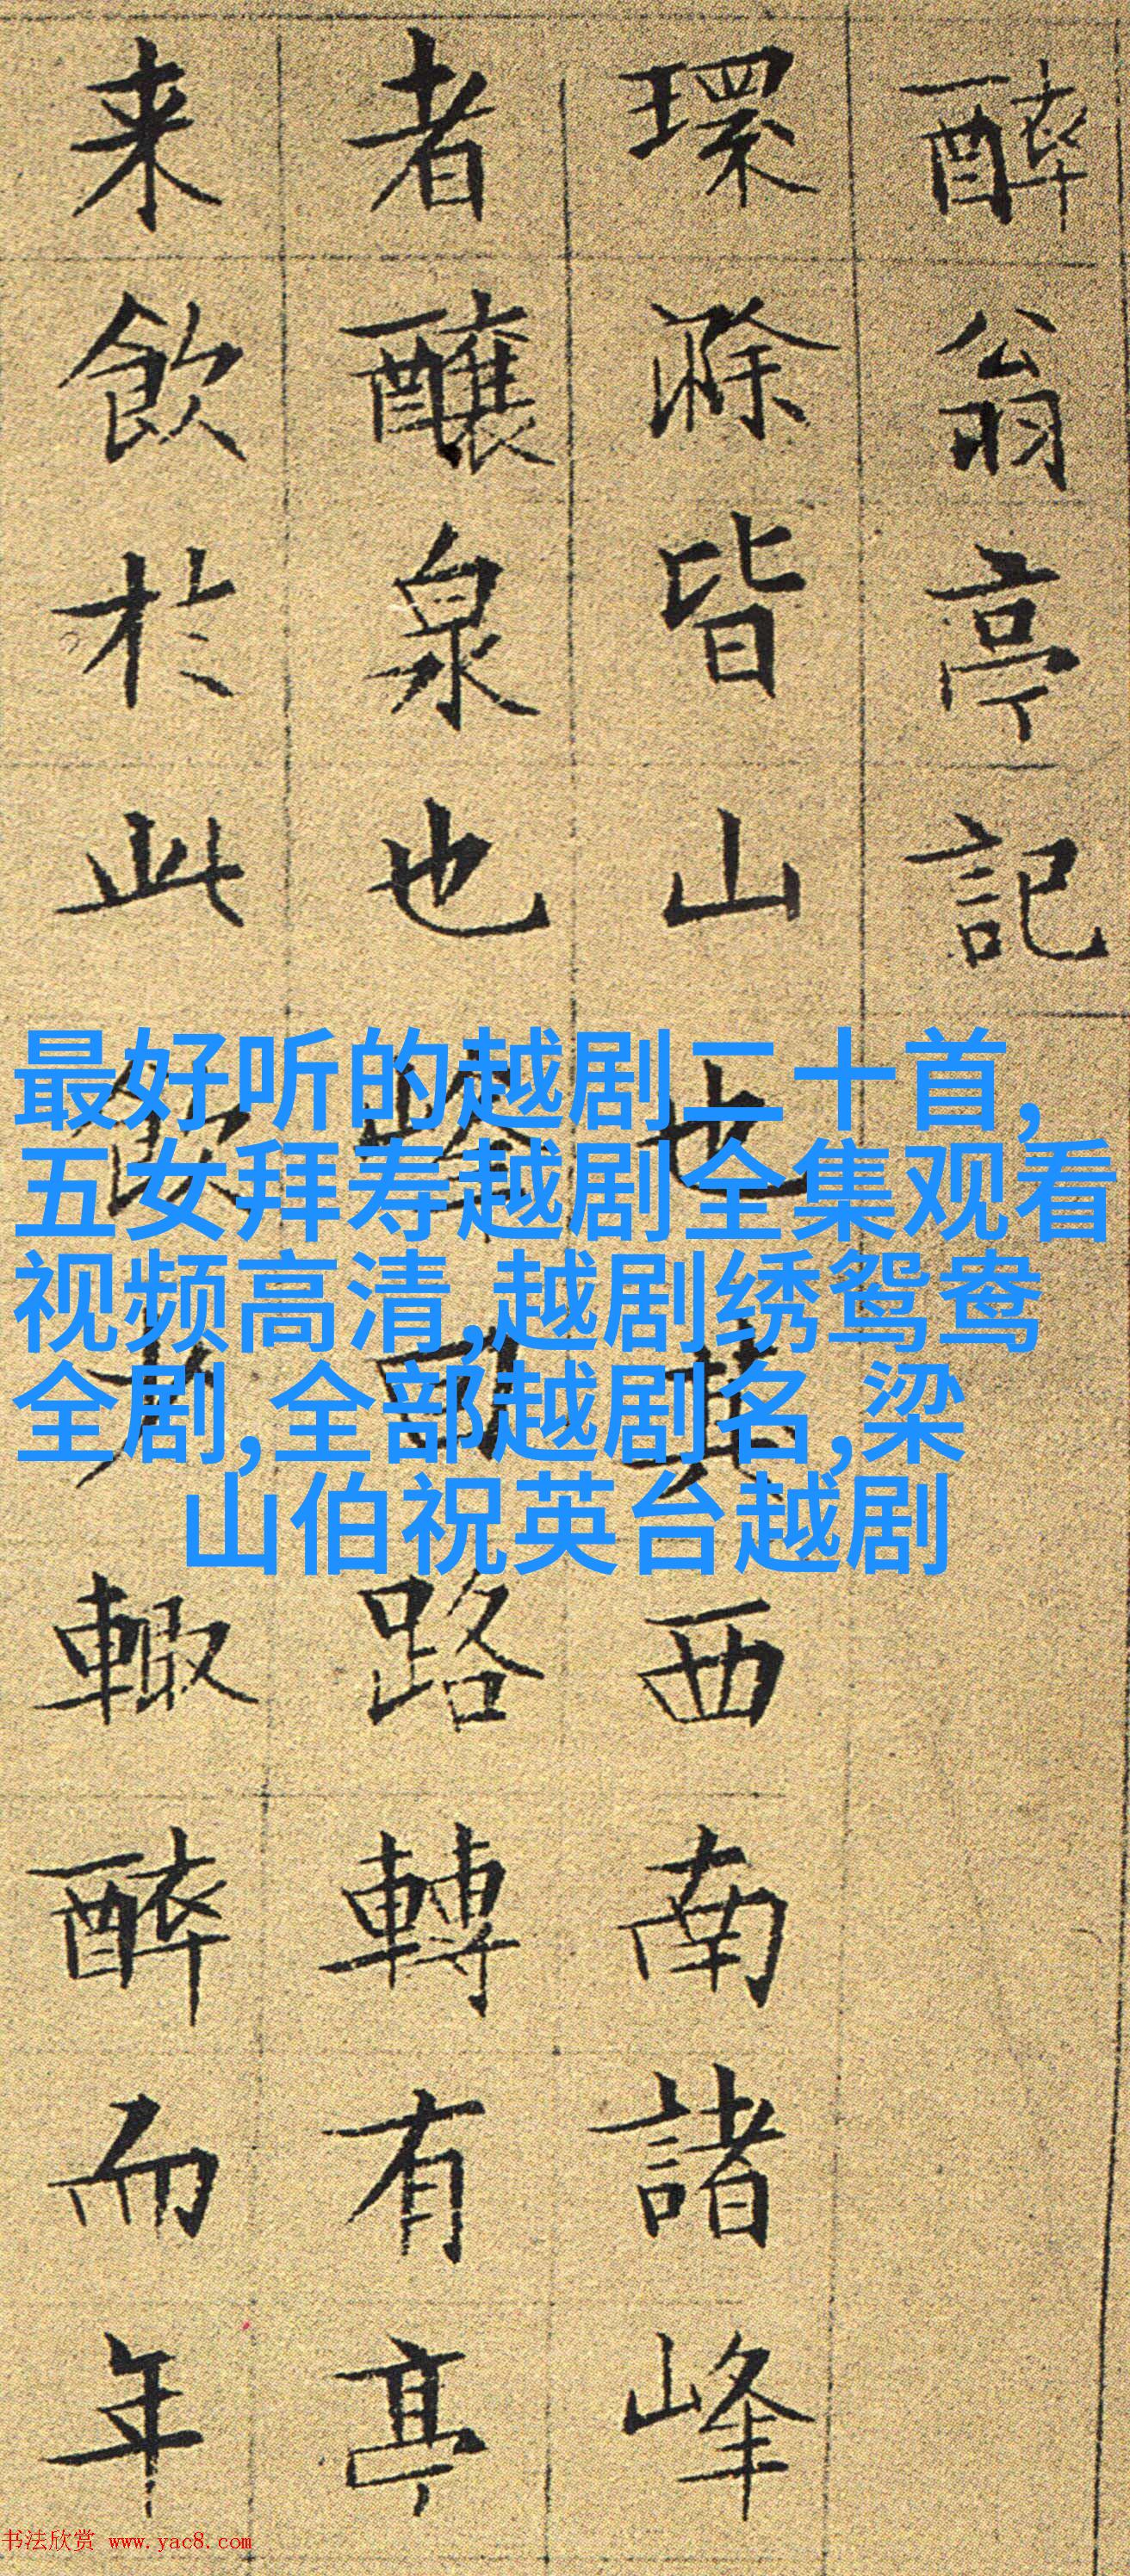 醉翁亭記
環滁皆山也其西南諸峰
者釀泉也峰回路轉有亭
来飲於此飲少輙醉而年
最好听的越剧二十首,
五女拜寿越剧全集观看
视频高清,越剧绣鸳鸯
全剧,全部越剧名,梁
山伯祝英台越剧
书法欣赏 www.yac8.com